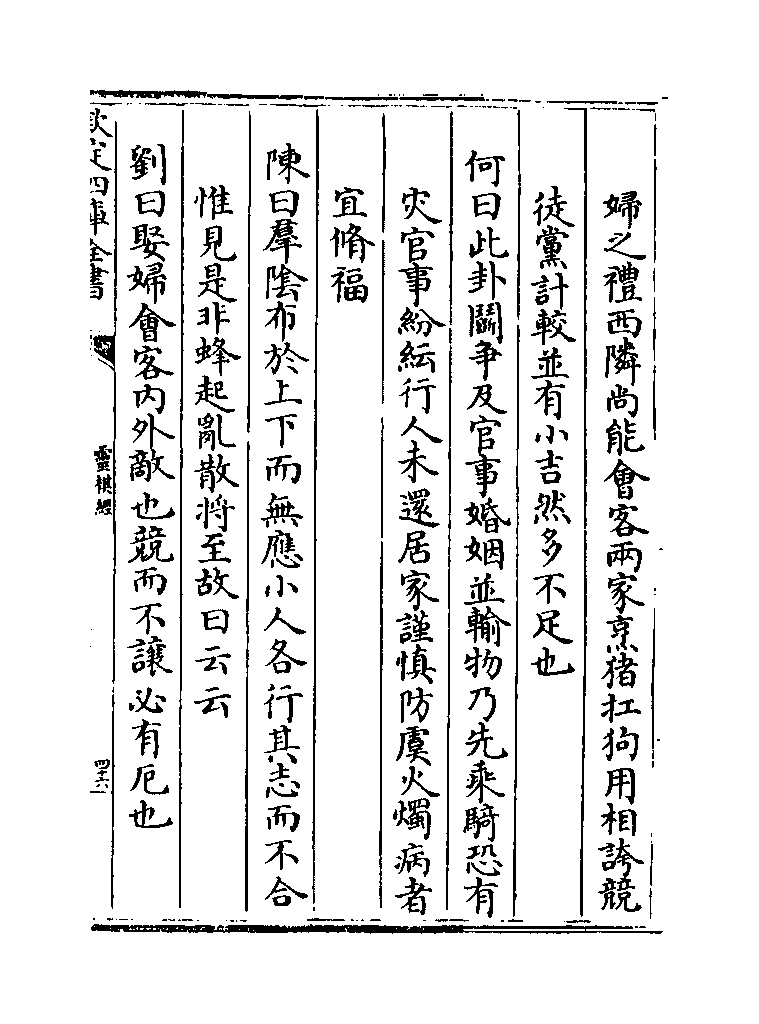 婦之禮西隣尚能會客兩家烹猪扛狗用相誇競
徒黨計較並有小吉然多不足也
何曰此卦鬭争及官事婚姻並輸物乃先乘騎恐有
灾官事紛紜行人未還居家謹慎防虞火燭病者
宜脩福
陳曰羣陰布於上下而無應小人各行其志而不合
惟見是非蜂起亂散将至故曰云云
劉曰娶婦會客内外敵也競而不讓必有厄也
欽定四庫全書
靈棋經
四十六